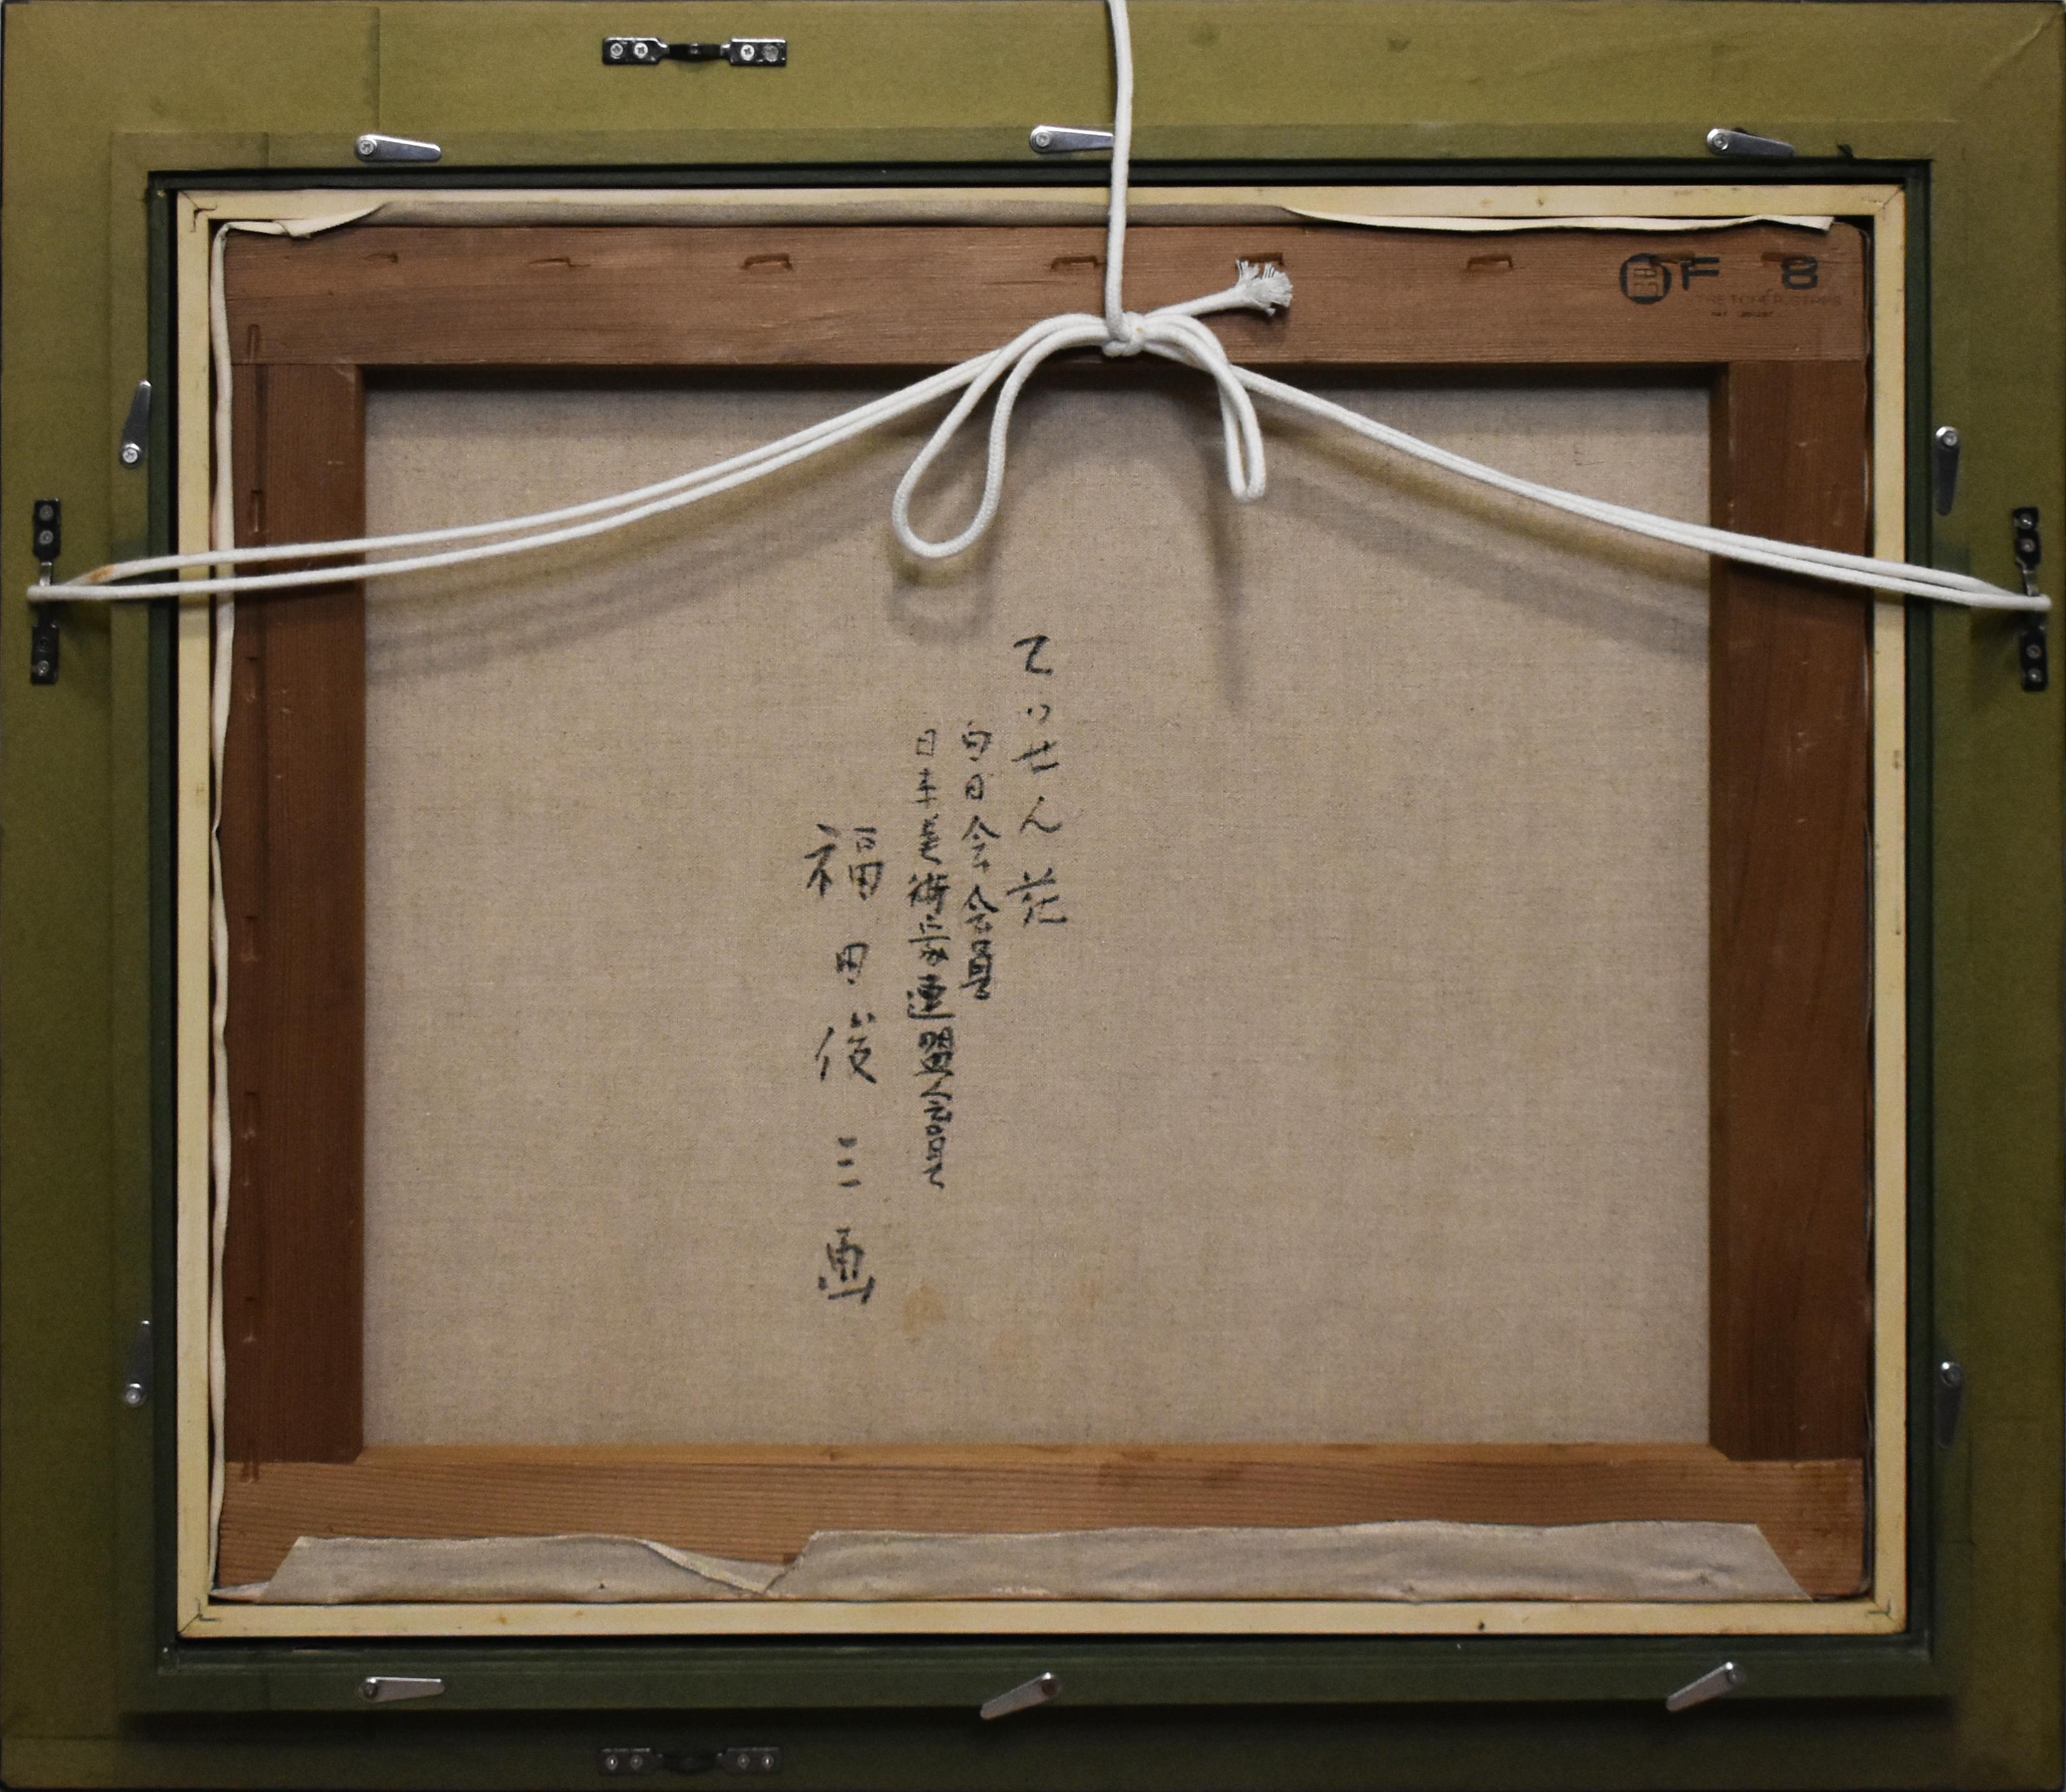 てっせん花
白日会会員
日本美術家連盟会員
福田俊三画
F 8